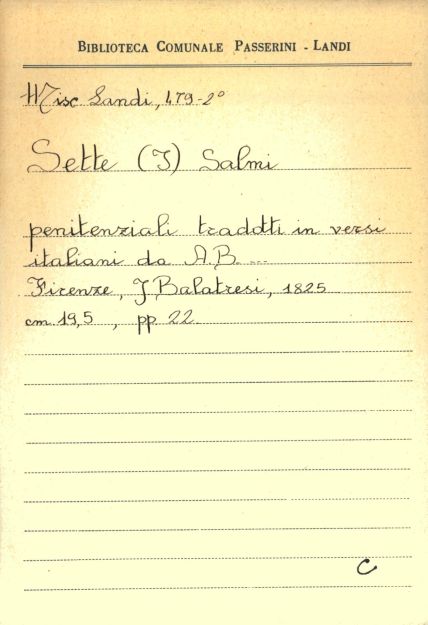 BIBLIOTECA COMUNALE PASSERINI - LANDI
Misc Landi, 479-2°
Sette (I) Salmi
penitenziali tradotti in versi
italiani da A.B. ...
Firenze, J Balatresi, 1825
cm 19,5 , pp 22.
C